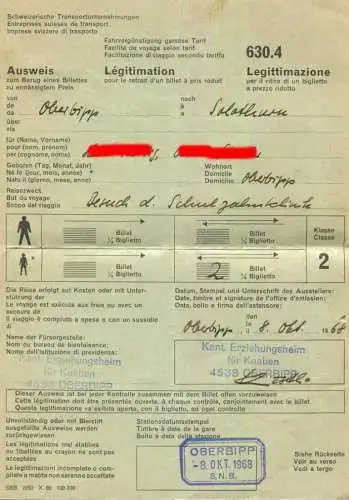 Schweizerische Transportunternehmungen
Entreprises suisses de transport
Imprese svizzere di trasporto
Fahrvergünstigung gemäss Tarif
Facilité de voyage selon tarif
Facilitazione di viaggio secondo tariffa
630.4
Ausweis Légitimation Legittimazione
zum Bezug eines Billettes pour le retrait d'un billet à prix réduit per il ritiro di un biglietto
zu ermässigtem Preis a prezzo ridotto
von nach
de Oberbipp à Solothurn
da a
für (Name, Vorname)
pour (nom, prénom)
per (cognome, nome)
Geboren (Tag, Monat, Jahr) Wohnort
Né le (jour, mois, année) Domicile Oberbipp
Nato il (giorno, mese, anno) Domicilio
Reisezweck
But du voyage Besuch d. Schulzahnklinik
Scopo del viaggio
Billet Billet Klasse
½ Biglietto ½ Biglietto Classe
Billet Billet
½ Biglietto 2 ½ Biglietto 2
Die Reise erfolgt auf Kosten oder mit Unter-
stützung der
Le voyage est exécuté aux frais ou avec un
secours de
Il viaggio è compiuto a spese o con un sussidio
di
Datum, Stempel und Unterschrift des Ausstellers:
Date, timbre et signature de l'office d'émission:
Data, bollo e firma dell'astensore:
den
Oberbipp le 8. Okt. 1968
il
Name der Fürsorgestelle:
Nom du bureau de bienfaisance:
Nome dell'istituzione di previdenza:
Kant. Erziehungsheim
für Knaben
4538 OBERBIPP
Kant. Erziehungsheim
für Knaben
4538 OBERBIPP
Dieser Ausweis ist bei jeder Kontrolle zusammen mit dem Billet offen vorzuweisen
Cette légitimation doit être présentée ouverte, à chaque contrôle, conjointement avec le billet.
Questa legittimazione va esibita aperta, con il biglietto, ad ogni controllo
Unvollständig oder mit Bleistift
ausgefüllte Ausweise werden
zurückgewiesen
Les légitimations mal établies
ou libellées au crayon ne sont pas
acceptées
Le legittimazioni incomplete o
compilate a matita non saranno accettate
Stationsdatumstempel
Timbre à date de la gare
Bollo a data della stazione
OBERBIPP
-8. OKT. 1968
S.N.B.
Siehe Rückseite
Voir au verso
Vedi a tergo